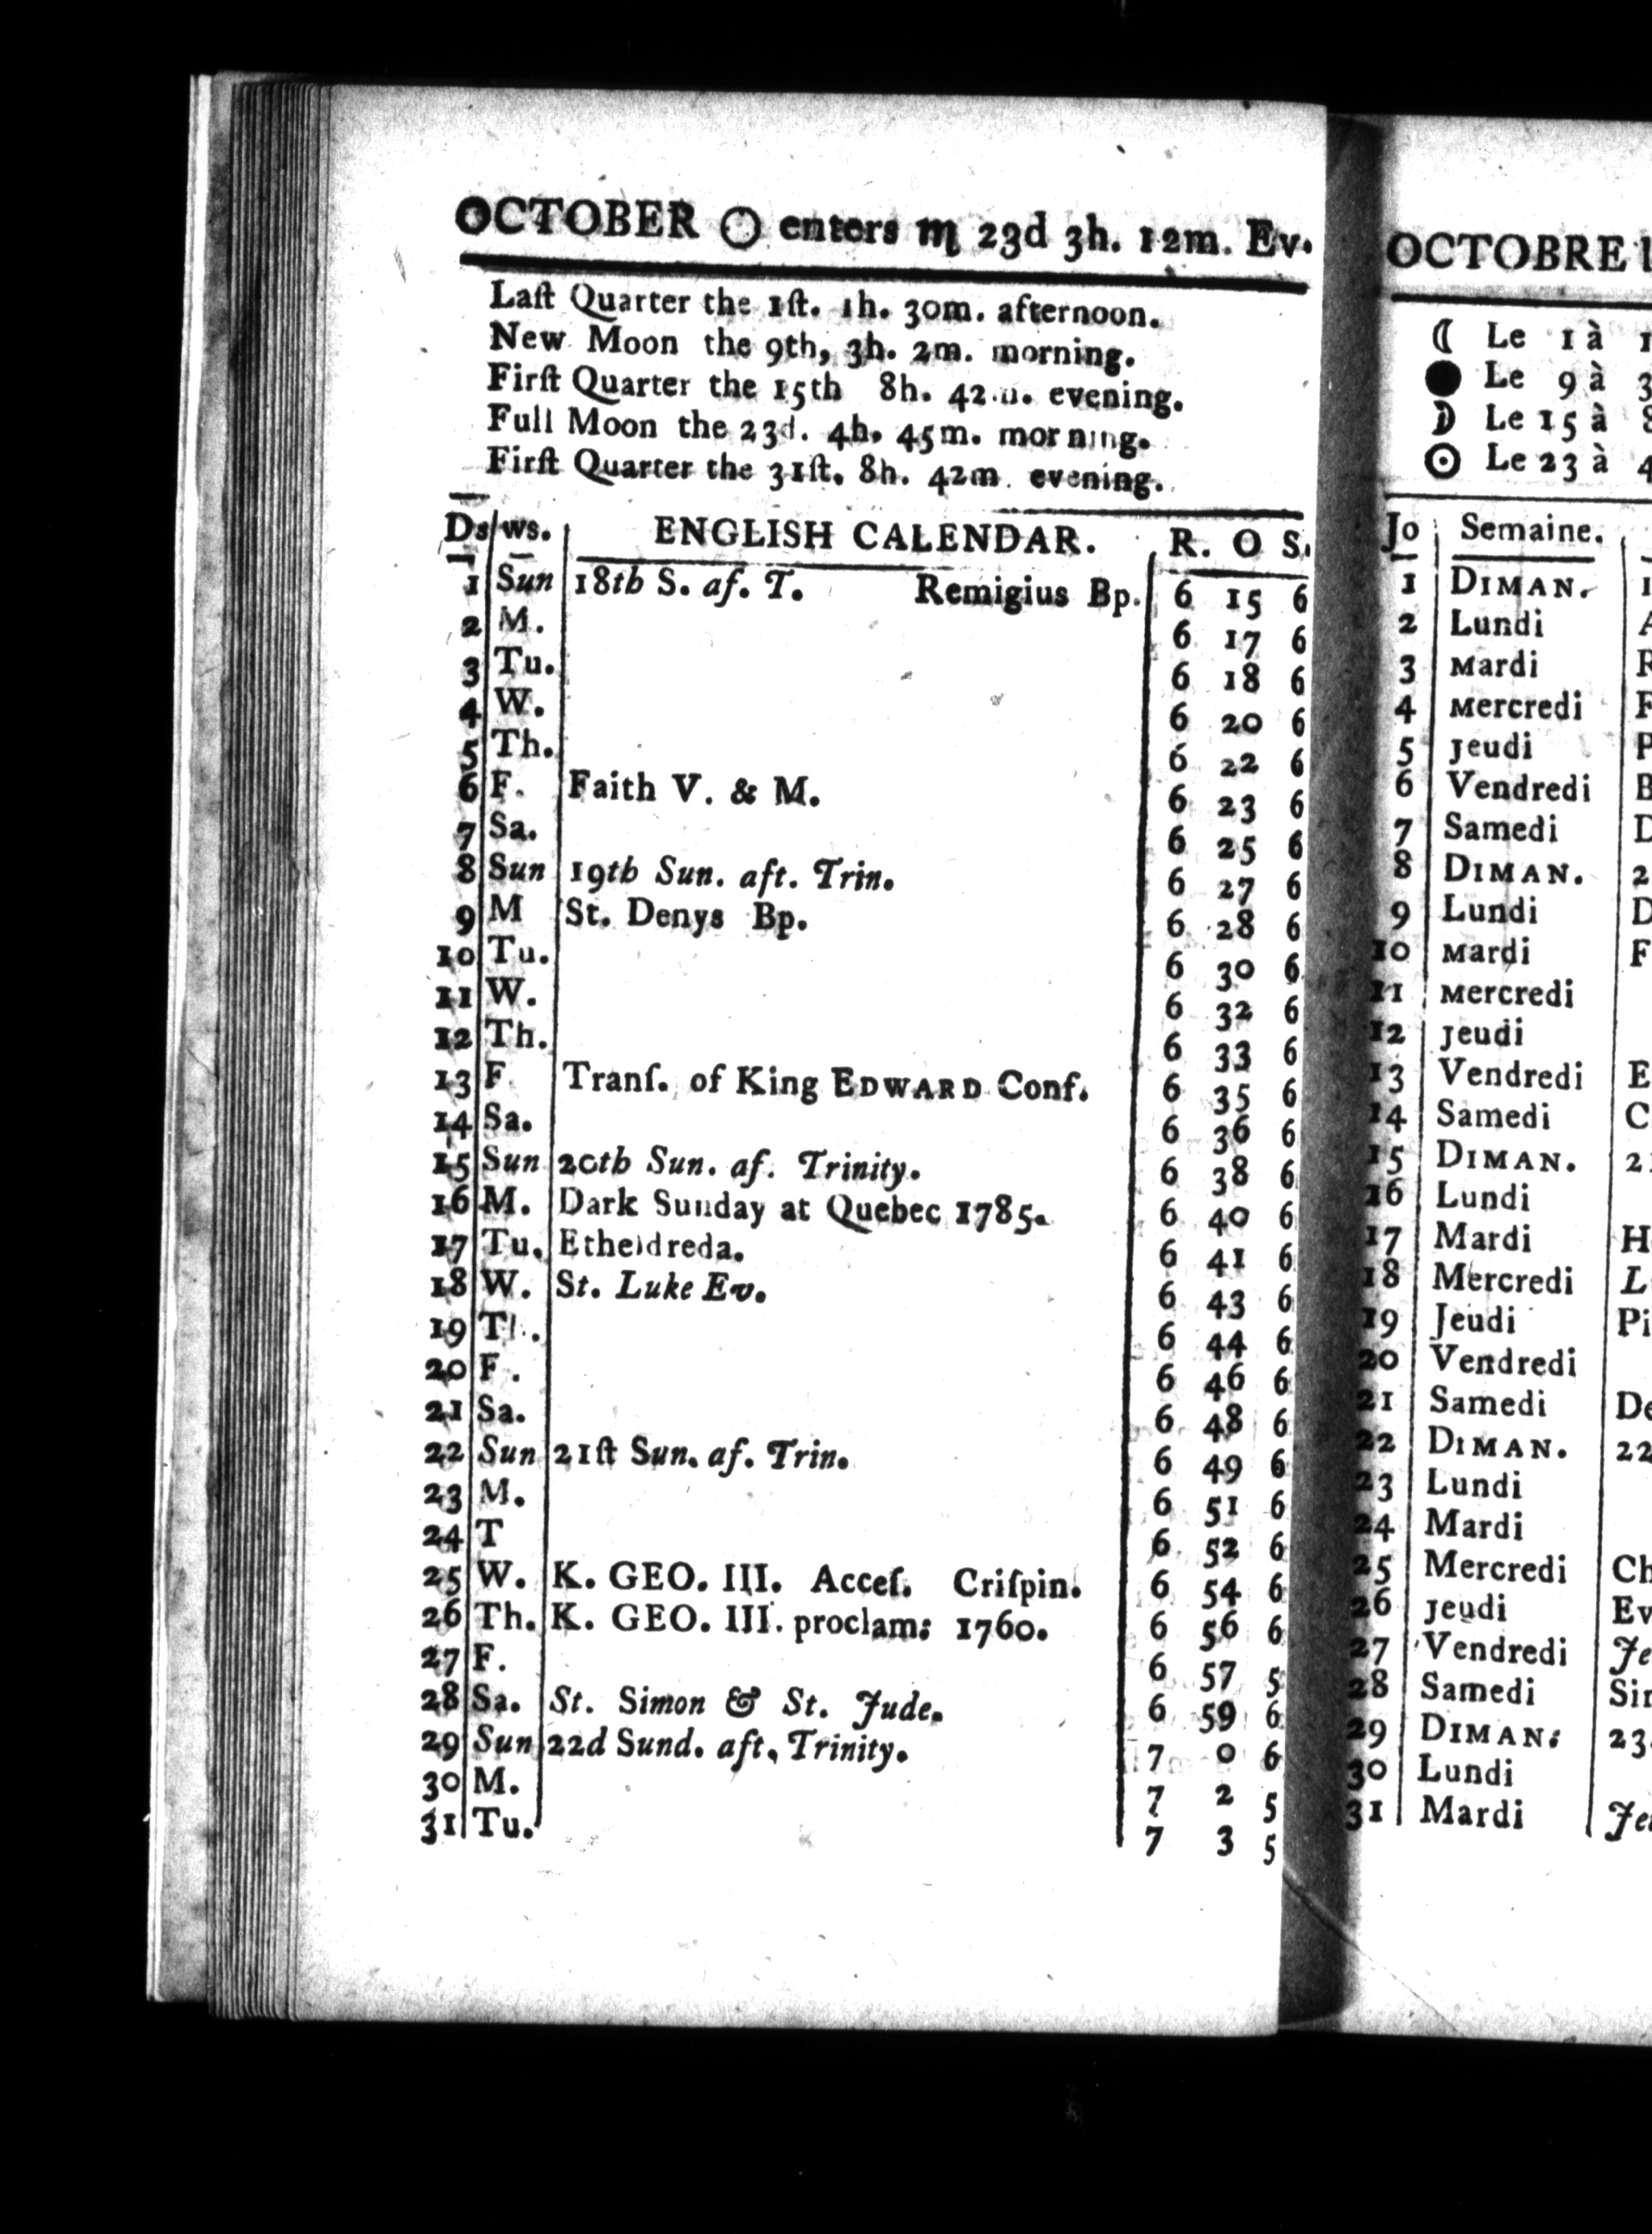 OCTOBER ☉ enters ♏ 23d 3h. 12m. Ev.
Laſt Quarter the 1ſt. 1h. 30m. afternoon.
New Moon the 9th, 3h. 2m. morning.
Firſt Quarter the 15th 8h. 42m. evening.
Full Moon the 23d. 4h. 45m. morning.
Firſt Quarter the 31ſt. 8h. 42m. evening.
Ds ws. ENGLISH CALENDAR. R. O S.
1 Sun 18th S. af. T. Remigius Bp. 6 15 6
2 M. 6 17 6
3 Tu. 6 18 6
4 W. 6 20 6
5 Th. 6 22 6
6 F. Faith V. & M. 6 23 6
7 Sa. 6 25 6
8 Sun 19th Sun. aft. Trin. 6 27 6
9 M St. Denys Bp. 6 28 6
10 Tu. 6 30 6
11 W. 6 32 6
12 Th. 6 33 6
13 F. Tranſ. of King EDWARD Conf. 6 35 6
14 Sa. 6 36 6
15 Sun 20th Sun. af. Trinity. 6 38 6
16 M. Dark Sunday at Quebec 1785. 6 40 6
17 Tu. Etheldreda. 6 41 6
18 W. St. Luke Ev. 6 43 6
19 Th. 6 44 6
20 F. 6 46 6
21 Sa. 6 48 6
22 Sun 21ſt Sun. af. Trin. 6 49 6
23 M. 6 51 6
24 T 6 52 6
25 W. K. GEO. III. Acceſ. Criſpin. 6 54 6
26 Th. K. GEO. III. proclam: 1760. 6 56 6
27 F. 6 57 5
28 Sa. St. Simon & St. Jude. 6 59 6
29 Sun 22d Sund. aft. Trinity. 7 0 6
30 M. 7 2 5
31 Tu. 7 3 5
OCTOBRE
☾ Le 1 à 1
● Le 9 à 3
☽ Le 15 à 8
☉ Le 23 à 4
Jo Semaine.
1 DIMAN. 1
2 Lundi A
3 Mardi R
4 Mercredi F
5 Jeudi P
6 Vendredi B
7 Samedi D
8 DIMAN. 2
9 Lundi D
10 Mardi F
11 Mercredi
12 Jeudi
13 Vendredi E
14 Samedi C
15 DIMAN. 2
16 Lundi
17 Mardi H
18 Mercredi L
19 Jeudi Pi
20 Vendredi
21 Samedi De
22 DIMAN. 22
23 Lundi
24 Mardi
25 Mercredi Ch
26 Jeudi Ev
27 Vendredi Je
28 Samedi Sim
29 DIMAN: 23
30 Lundi
31 Mardi Jeu